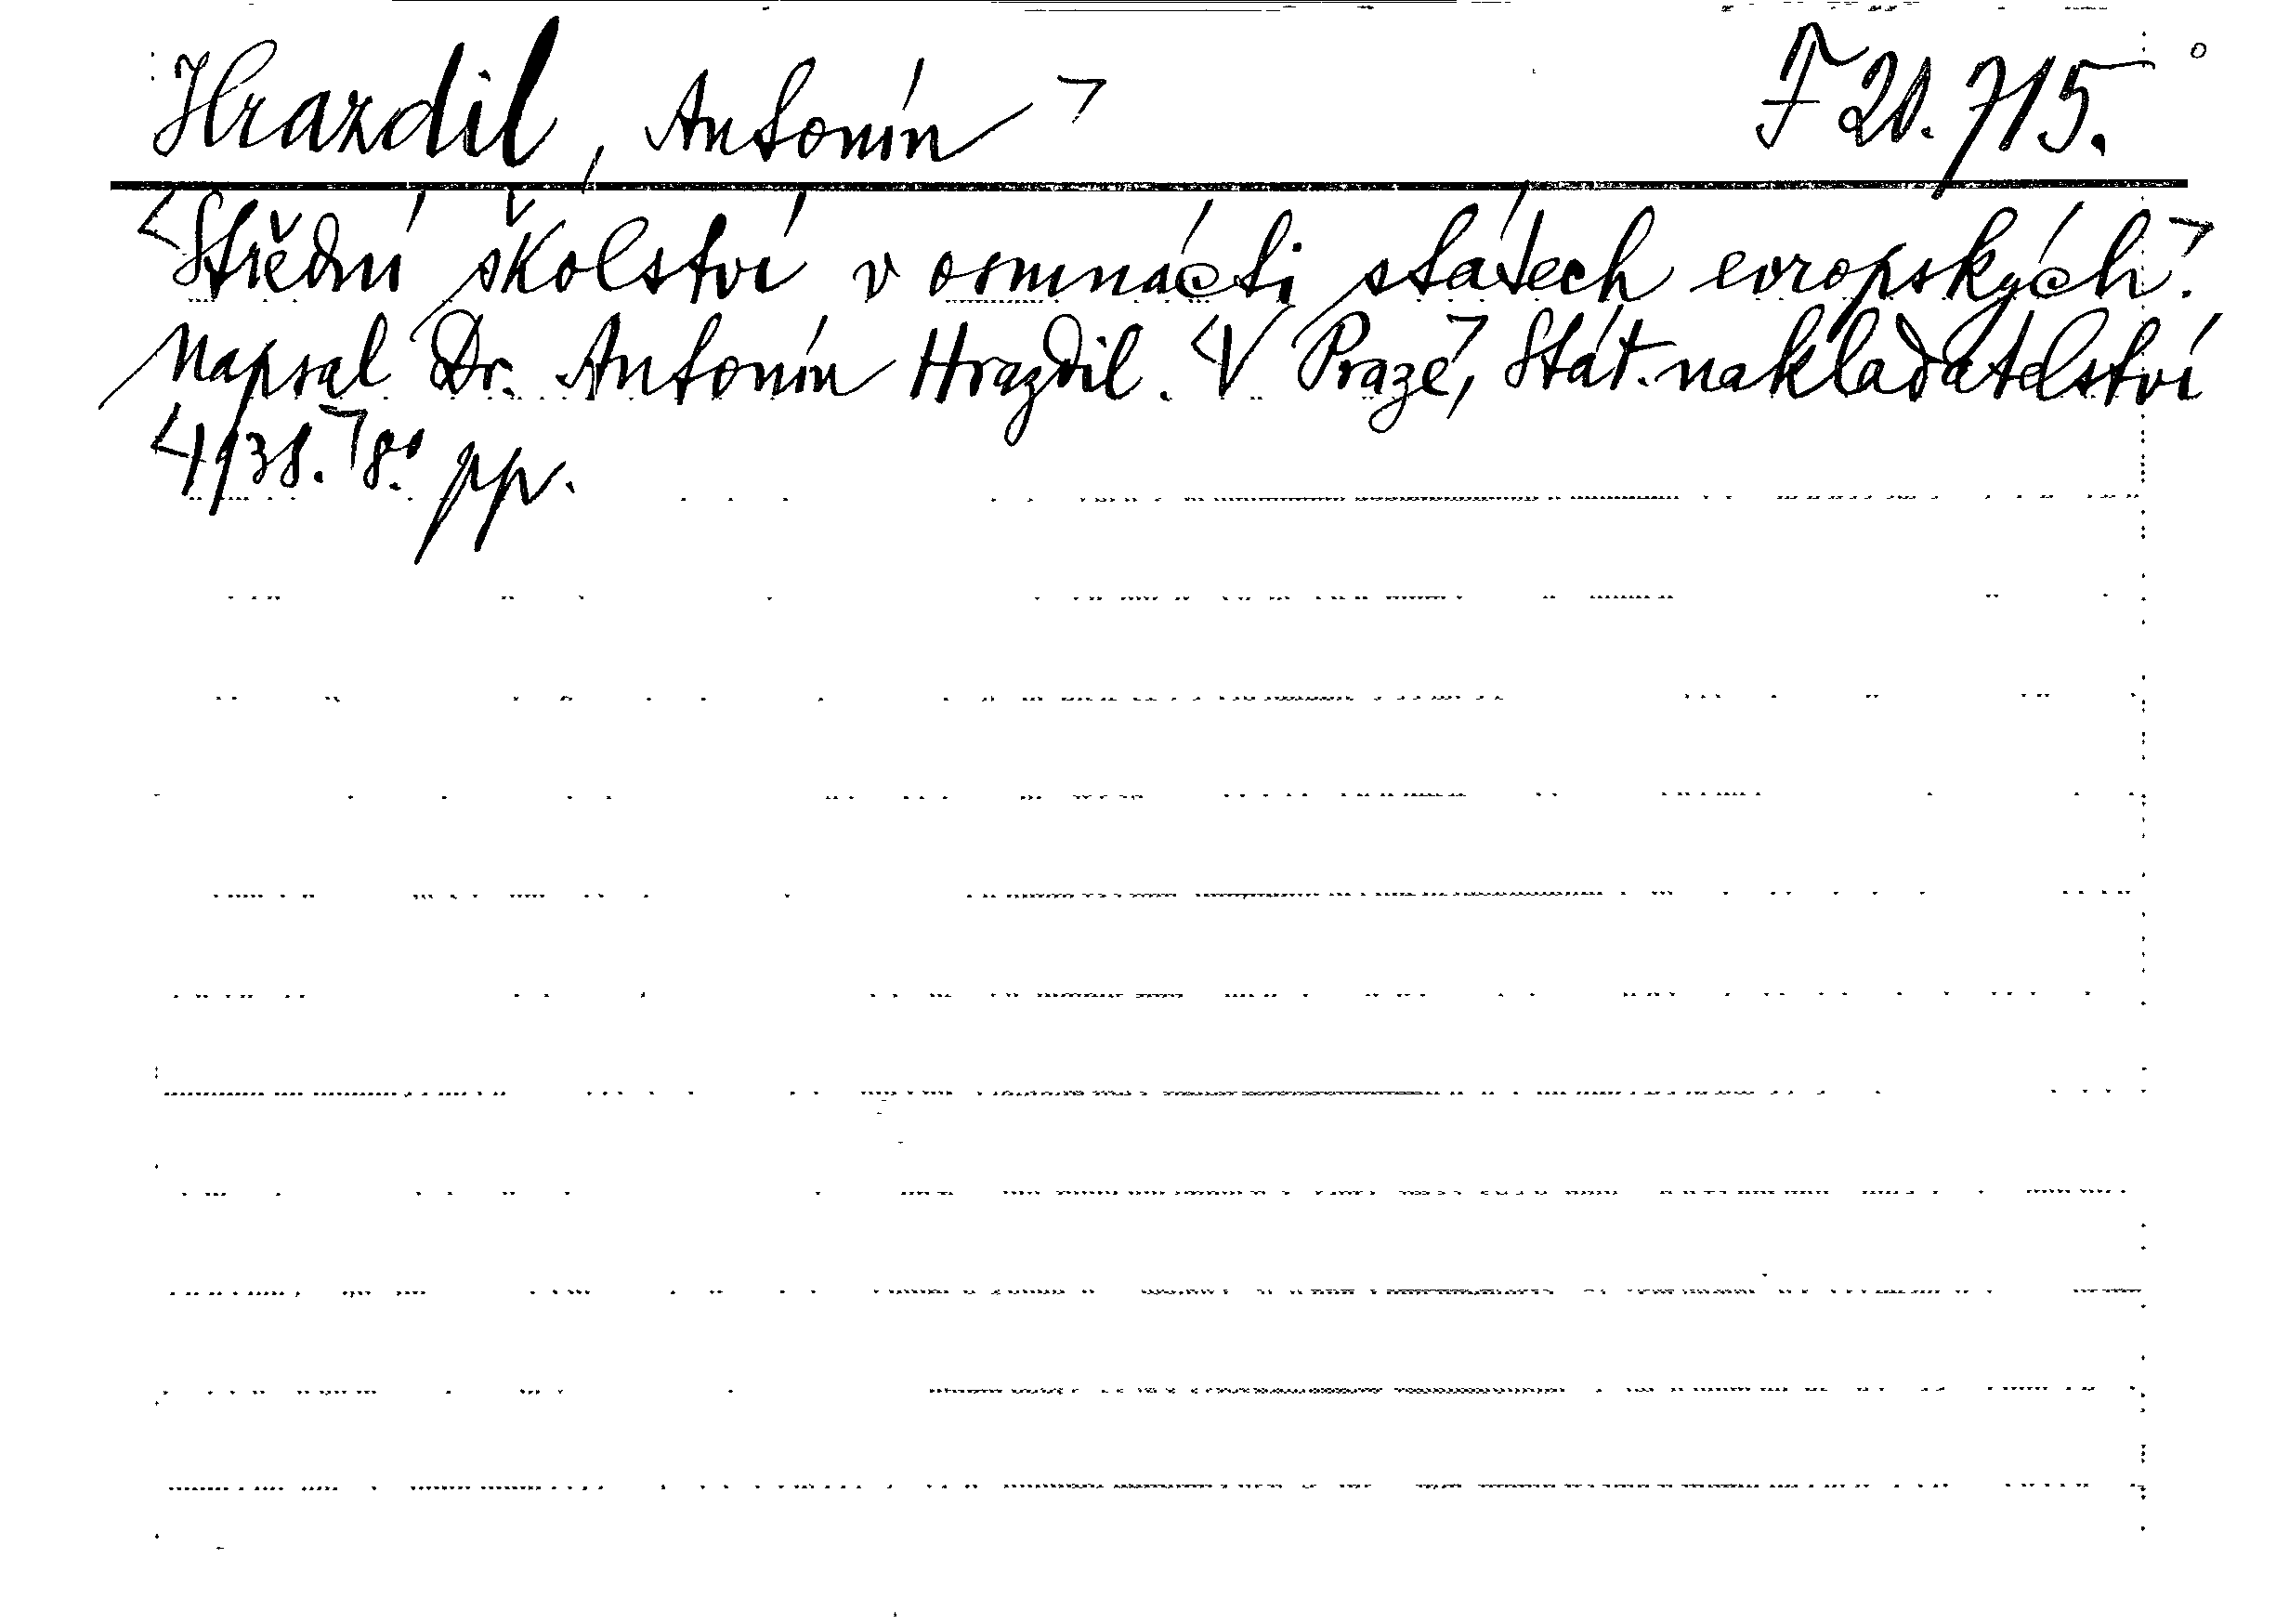 Hrazdil, Antonín ㄱ F 20.715.
<Střední školství v osmnácti státech evropských.ㄱ
Napsal Dr. Antonín Hrazdil. <V Prazeㄱ, Stát. nakladatelství
<1938.ㄱ 8.° pp.